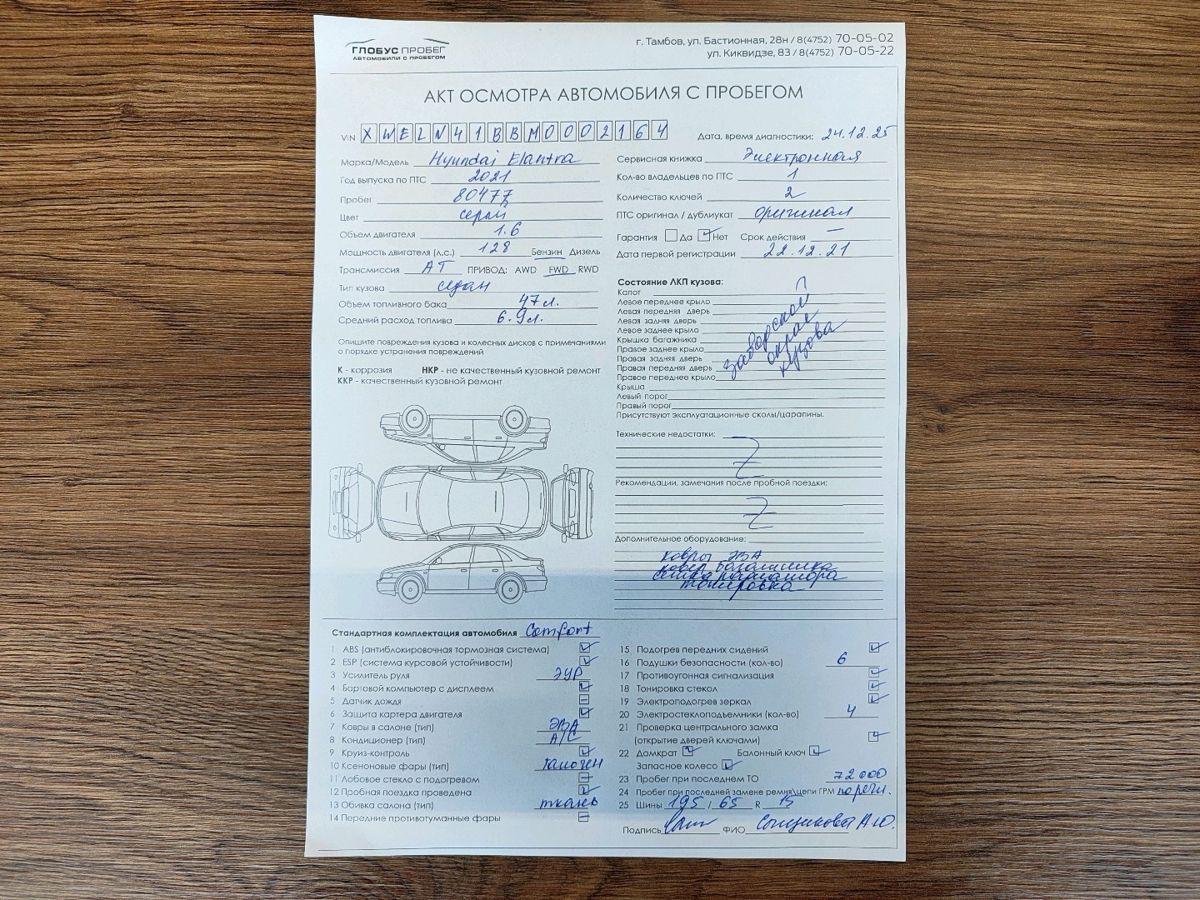 ГЛОБУС ПРОБЕГ
АВТОМОБИЛИ С ПРОБЕГОМ
г. Тамбов, ул. Бастионная, 28н / 8(4752) 70-05-02
ул. Киквидзе, 83 / 8(4752) 70-05-22
АКТ ОСМОТРА АВТОМОБИЛЯ С ПРОБЕГОМ
VIN XWELN41BBM0002164
Дата, время диагностики: 24.12.25
Марка/Модель Hyundai Elantra
Год выпуска по ПТС 2021
Пробег 80477
Цвет серый
Объем двигателя 1.6
Мощность двигателя (л.с.) 128 Бензин Дизель
Трансмиссия АТ ПРИВОД: AWD FWD RWD
Тип кузова седан
Объем топливного бака 47 л.
Средний расход топлива 6.9 л.
Сервисная книжка Электронная
Кол-во владельцев по ПТС 1
Количество ключей 2
ПТС оригинал / дубликат оригинал
Гарантия Да Нет Срок действия —
Дата первой регистрации 22.12.21
Опишите повреждения кузова и колесных дисков с примечаниями
о порядке устранения повреждений
К - коррозия НКР - не качественный кузовной ремонт
ККР - качественный кузовной ремонт
Состояние ЛКП кузова:
Капот
Левое переднее крыло
Левая передняя дверь
Левая задняя дверь
Левое заднее крыло
Крышка багажника
Правое заднее крыло
Правая задняя дверь
Правая передняя дверь
Правое переднее крыло
Крыша
Левый порог
Правый порог
заводской
окрас
кузова
Присутствуют эксплуатационные сколы/царапины.
Технические недостатки:
Z
Рекомендации, замечания после пробной поездки:
Z
Дополнительное оборудование:
ковры ЭВА
ковер багажника
сетка радиатора
тонировка
Стандартная комплектация автомобиля Comfort
1 ABS (антиблокировочная тормозная система)
2 ESP (система курсовой устойчивости)
3 Усилитель руля ЭУР
4 Бортовой компьютер с дисплеем
5 Датчик дождя
6 Защита картера двигателя
7 Ковры в салоне (тип) ЭВА
8 Кондиционер (тип) A/C
9 Круиз-контроль
10 Ксеноновые фары (тип) галоген
11 Лобовое стекло с подогревом
12 Пробная поездка проведена
13 Обивка салона (тип) ткань
14 Передние противотуманные фары
15 Подогрев передних сидений
16 Подушки безопасности (кол-во) 6
17 Противоугонная сигнализация
18 Тонировка стекол
19 Электроподогрев зеркал
20 Электростеклоподъемники (кол-во) 4
21 Проверка центрального замка
(открытие дверей ключами)
22 Домкрат Балонный ключ
Запасное колесо
23 Пробег при последнем ТО 72000
24 Пробег при последней замене ремня\цепи ГРМ по регл.
25 Шины 195 / 65 R 15
Подпись ФИО